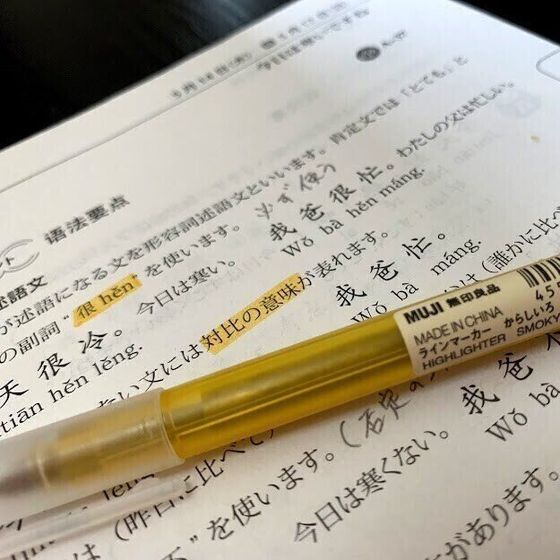 语法要点
述語文
が述語になる文を形容詞述語文といいます。肯定文では「とても」と
の副詞"很 hěn"を使います。必ず使う
天很冷。今日は寒い。我爸很忙。わたしの父は忙しい。
tiān hěn lěng. Wǒ bà hěn máng.
ない文には対比の意味が表れます。
我爸忙。
Wǒ bà máng.
(誰かに比べ
(昨日に比べて)
"を使います。(否定の
今日は寒くない。我爸不
Wǒ bà
があります。
MUJI 無印良品
MADE IN CHINA
ラインマーカー からしいろ
HIGHLIGHTER SMOKY
45